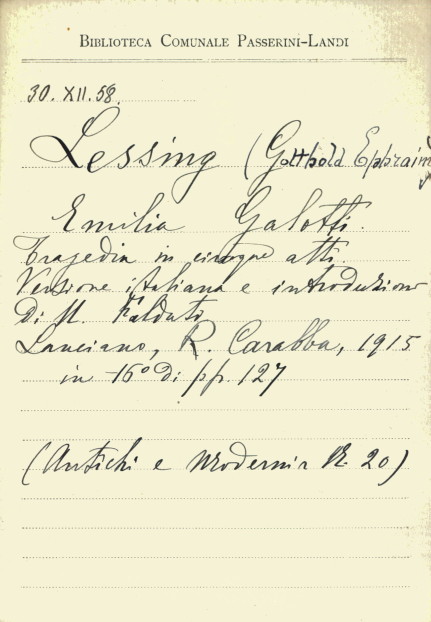 BIBLIOTECA COMUNALE PASSERINI-LANDI
30. XII. 58.
Lessing (Gotthold Ephraim)
Emilia Galotti.
Tragedia in cinque atti.
Versione italiana e introduzione
di N.
Lanciano, R. Carabba, 1915
in 16° di pp. 127
(Antichi e Moderni N. 20)